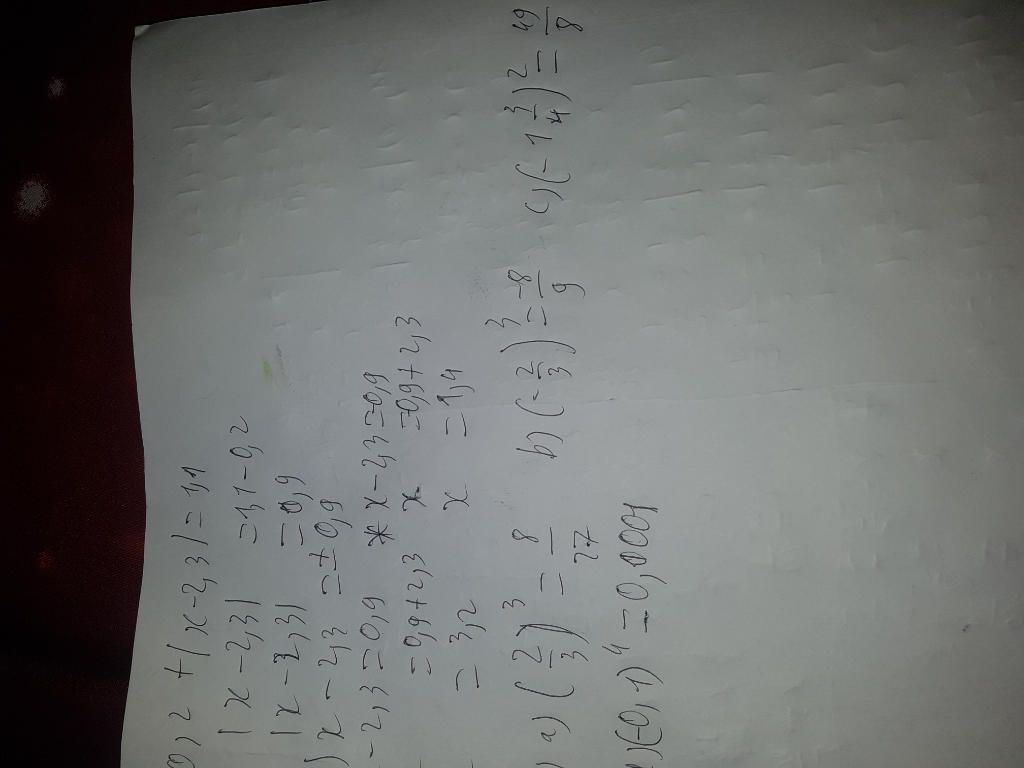 0,2 + |x-2,3| = 1,1
|x-2,3| = 1,1-0,2
|x-2,3| = 0,9
x-2,3 = ±0,9
-2,3 = 0,9 * x-2,3 = 0,9
= 0,9+2,3 x = 0,9+2,3
= 3,2 x = 1,4
a) (2/3)^3 = 8/27 b) (-2/3)^3 = -8/9 c) (-1 3/4)^2 = 49/8
(-0,1)^4 = 0,0001